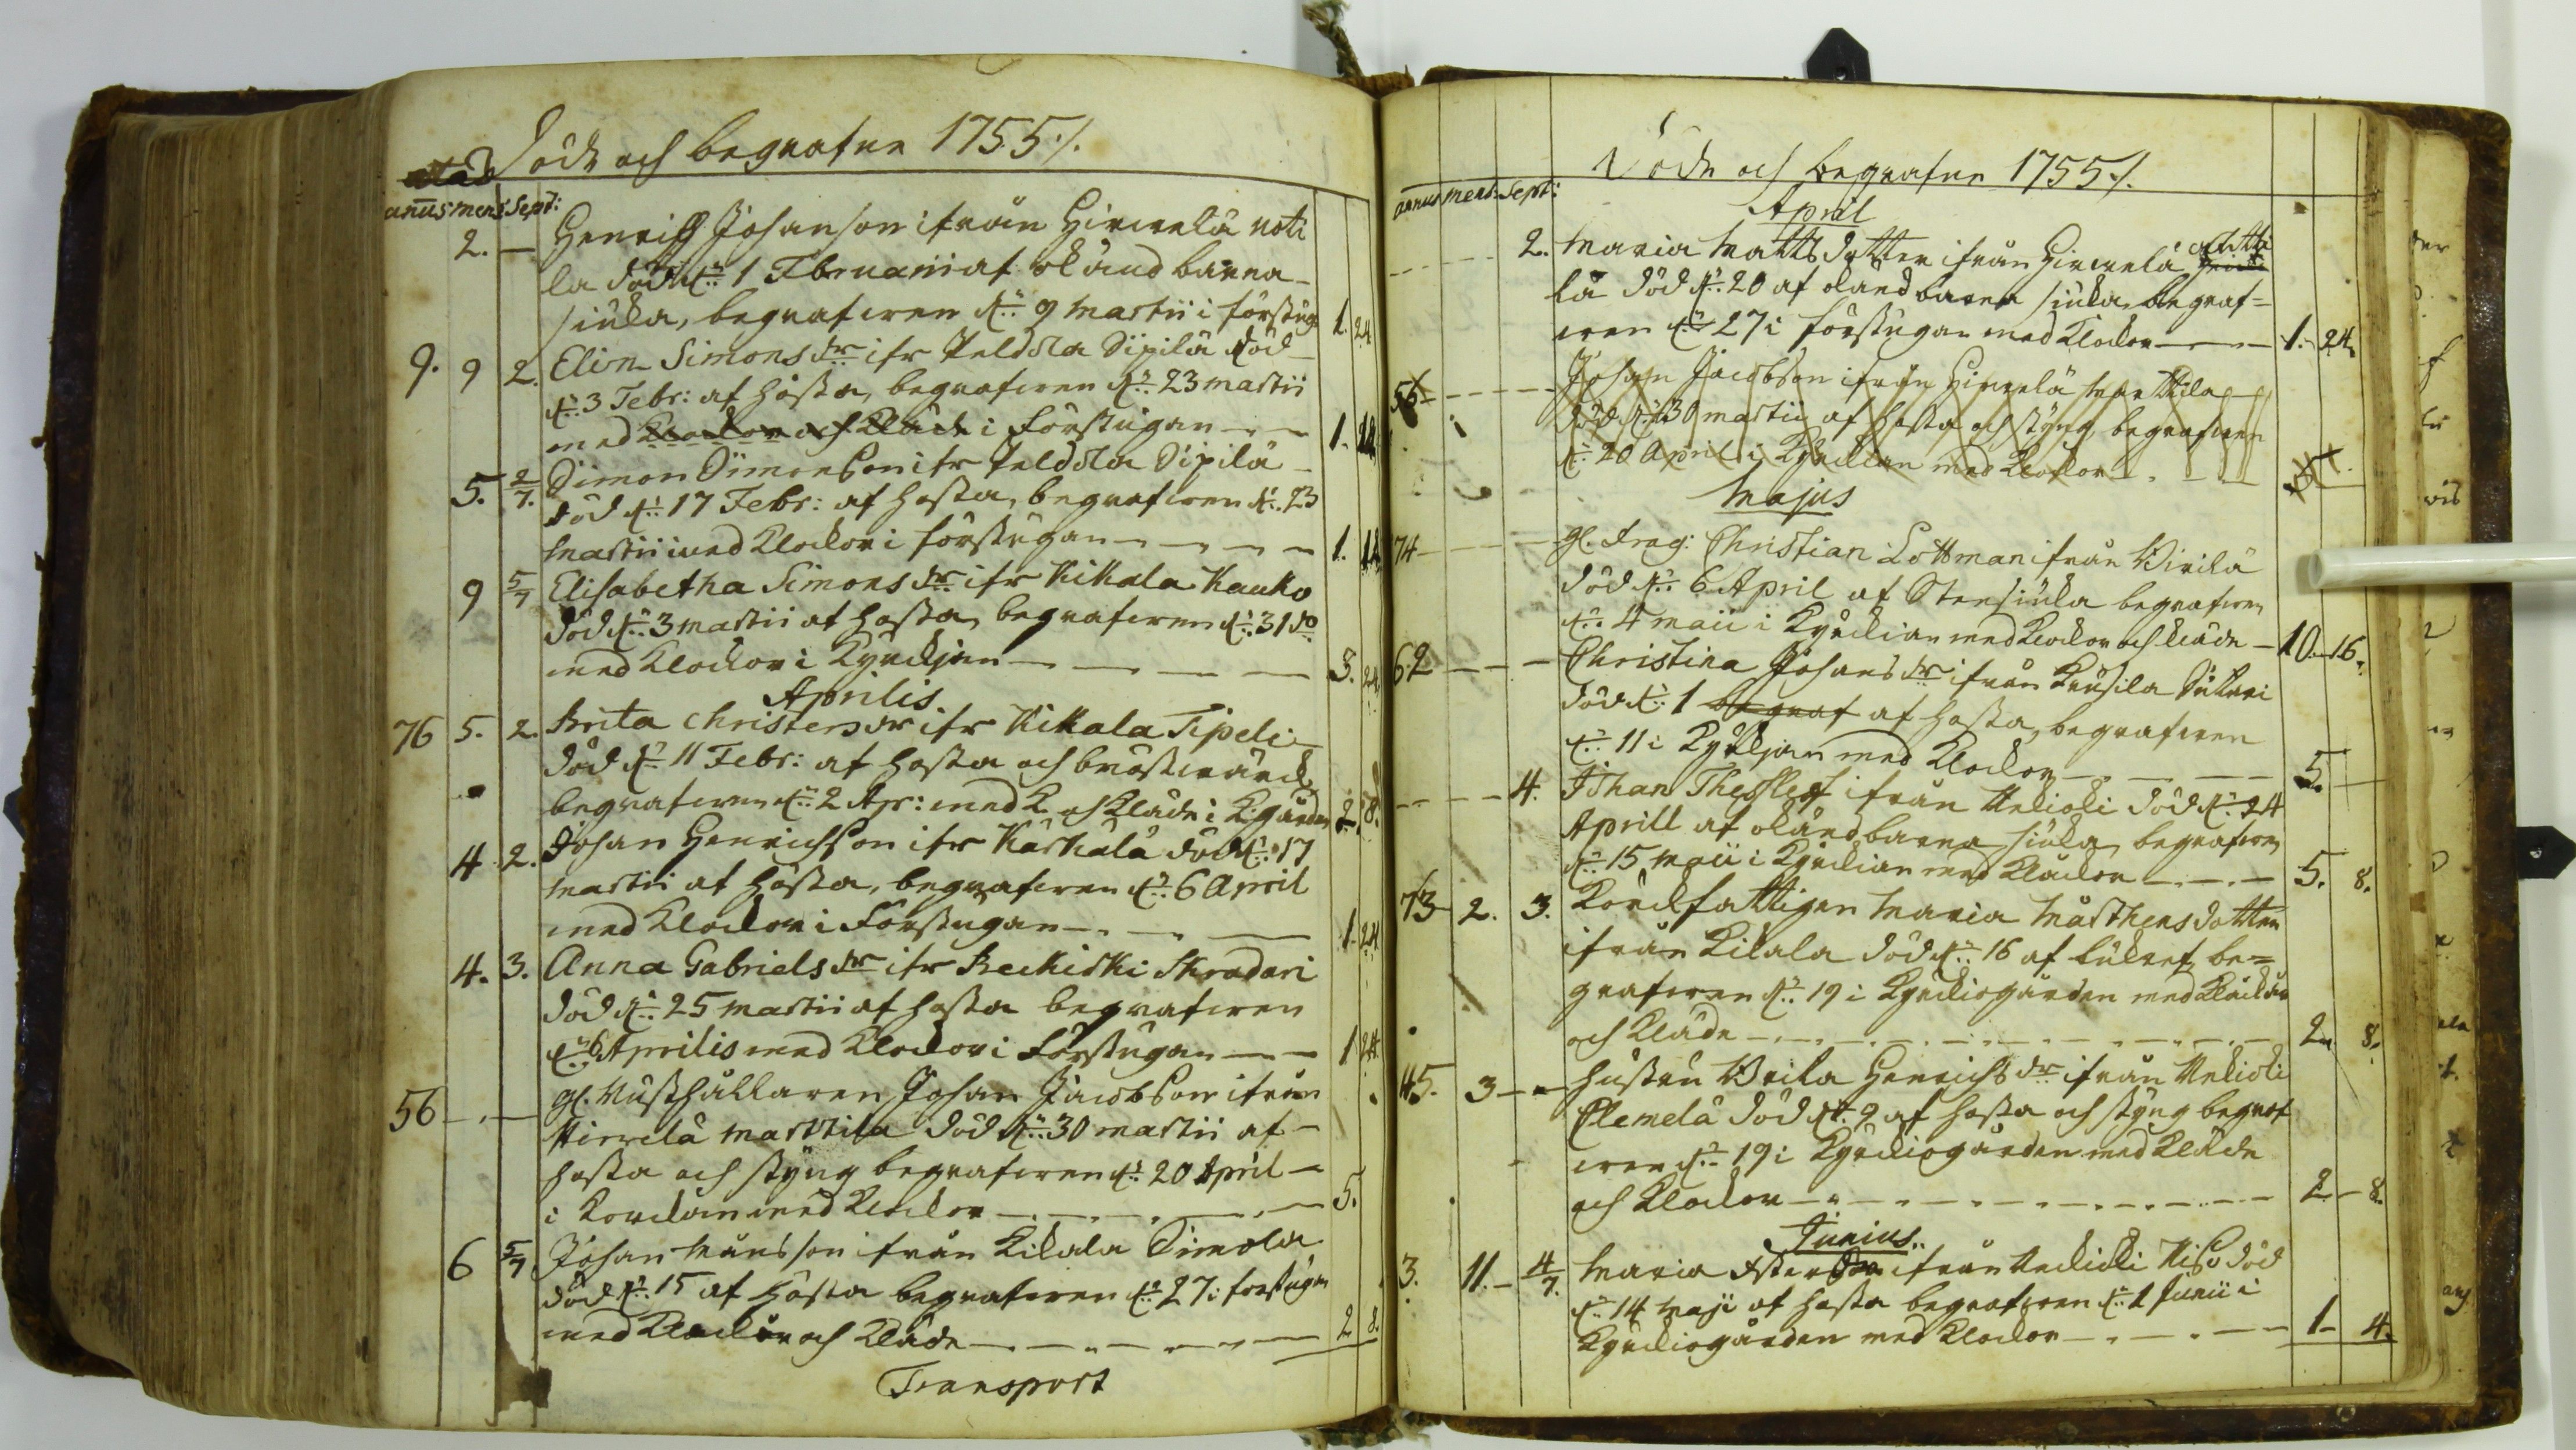 Döde och begrafne 1755 ./.
annus mens Sept:
2. — Henrich Johanson ifrån Hirvelä
la död d: 1 Februarii af okänd barna-
siuka, begrafwen d: 9 Martii i förstuga 1. 24
9. 9 2. Elin Simons dr ifr Peldola Sipilä död
d: 3 Febr: af hosta, begrafwen d: 23 martii
med klockor och kläde i förstugan — — 1.
5. 2/7. Simon Simonson ifr Peldola Sipilä
död d: 17 Febr: af hosta, begrafwen d: 23
Martii med klockor i förstugan — — — — 1.
9 5/7 Elisabetha Simons dr ifr Kikala Kauko
död d: 3 martii af hosta, begrafwen d: 31 do
med klockor i Kyrckjan — — — — 5. 24
Aprilis
76 5. 2. Brita Christers dr ifr Kikala Sipeli
död d: 11 Febr: af hosta och bröstwärck
begrafwen d: 2 Apr: med K och kläde i Kgården 2. 8.
4 2. Johan Henrichson ifr Kärkälä död d: 17
Martii af hosta, begrafwen d: 6 April
med klockor i förstugan — — — 1. 24
4. 3. Anna Gabriels dr ifr Reckiski Skradari
död d: 25 martii af hosta begrafwen
d: 6 Aprilis med klockor i förstugan — — 1 24.
56 — . — gl. Rusthållaren Johan Jacobson ifrån
Hirvelä Marttila död d: 30 martii af
hosta och styng begrafwen d: 20 April
i Kÿrckan med klockor — — — 5.
6 5/7 Johan Månsson ifrån Kikala Simola
död d: 15 af hosta begrafwen d: 27 i förstugan
med klockor och kläde — — — — 2 8.
Transport
Döde och begrafne 1755 ./.
annus mens: Sept:
April
2. Maria Matts dotter ifrån Hirvelä
lä död d: 20 af okänd barna siuka begraf=
wen d: 27 i förstugan med klockor — — 1. 24.
56 — Johan Jacobson ifrån Hirvelä Marttila
död d: 30 martii af hosta och styng begrafwen
d: 20 April i Kyrckian med klockor — — 5.
Majus
74 — gl. drag: Christian Lottman ifrån Wirilä
död d: 6 April af Stensiuka begrafwen
d: 4 maii i Kyrckian med klockor och kläde — 10. 16.
62 — Christina Johans dr ifrån Kruusila
död d: 1 begraf af hosta, begrafwen
d: 11 i Kyrkjan med klockor — — — 5.
4. Johan Thesleff ifrån Rekiski död d: 24
Aprill af okänd barna siuka, begrafwen
d: 15 maii i Kyrckian med klockor — — 5. 8.
73 2. 3. Kyrckfattigen Maria Mårthens dotter
ifrån Kikala död d: 16 af be=
grafwen d: 19 i Kyrckiogården med klockor
och kläde — — — — — — 2. 8.
45. 3 — Hustru Brita Henrichs dr ifrån Rekiski
Clemelä död d: 9 af hosta och styng begraf
wen d: 19 i Kyrckiogården med kläde
och klockor — — — — — — 2. 8.
Junius.
3. 11. 4/7. Maria ifrån Reckiski död
d: 14 maji af hosta begrafwen d: 1 Junii i
Kyrckiogården med klockor — — — 1 — 4.